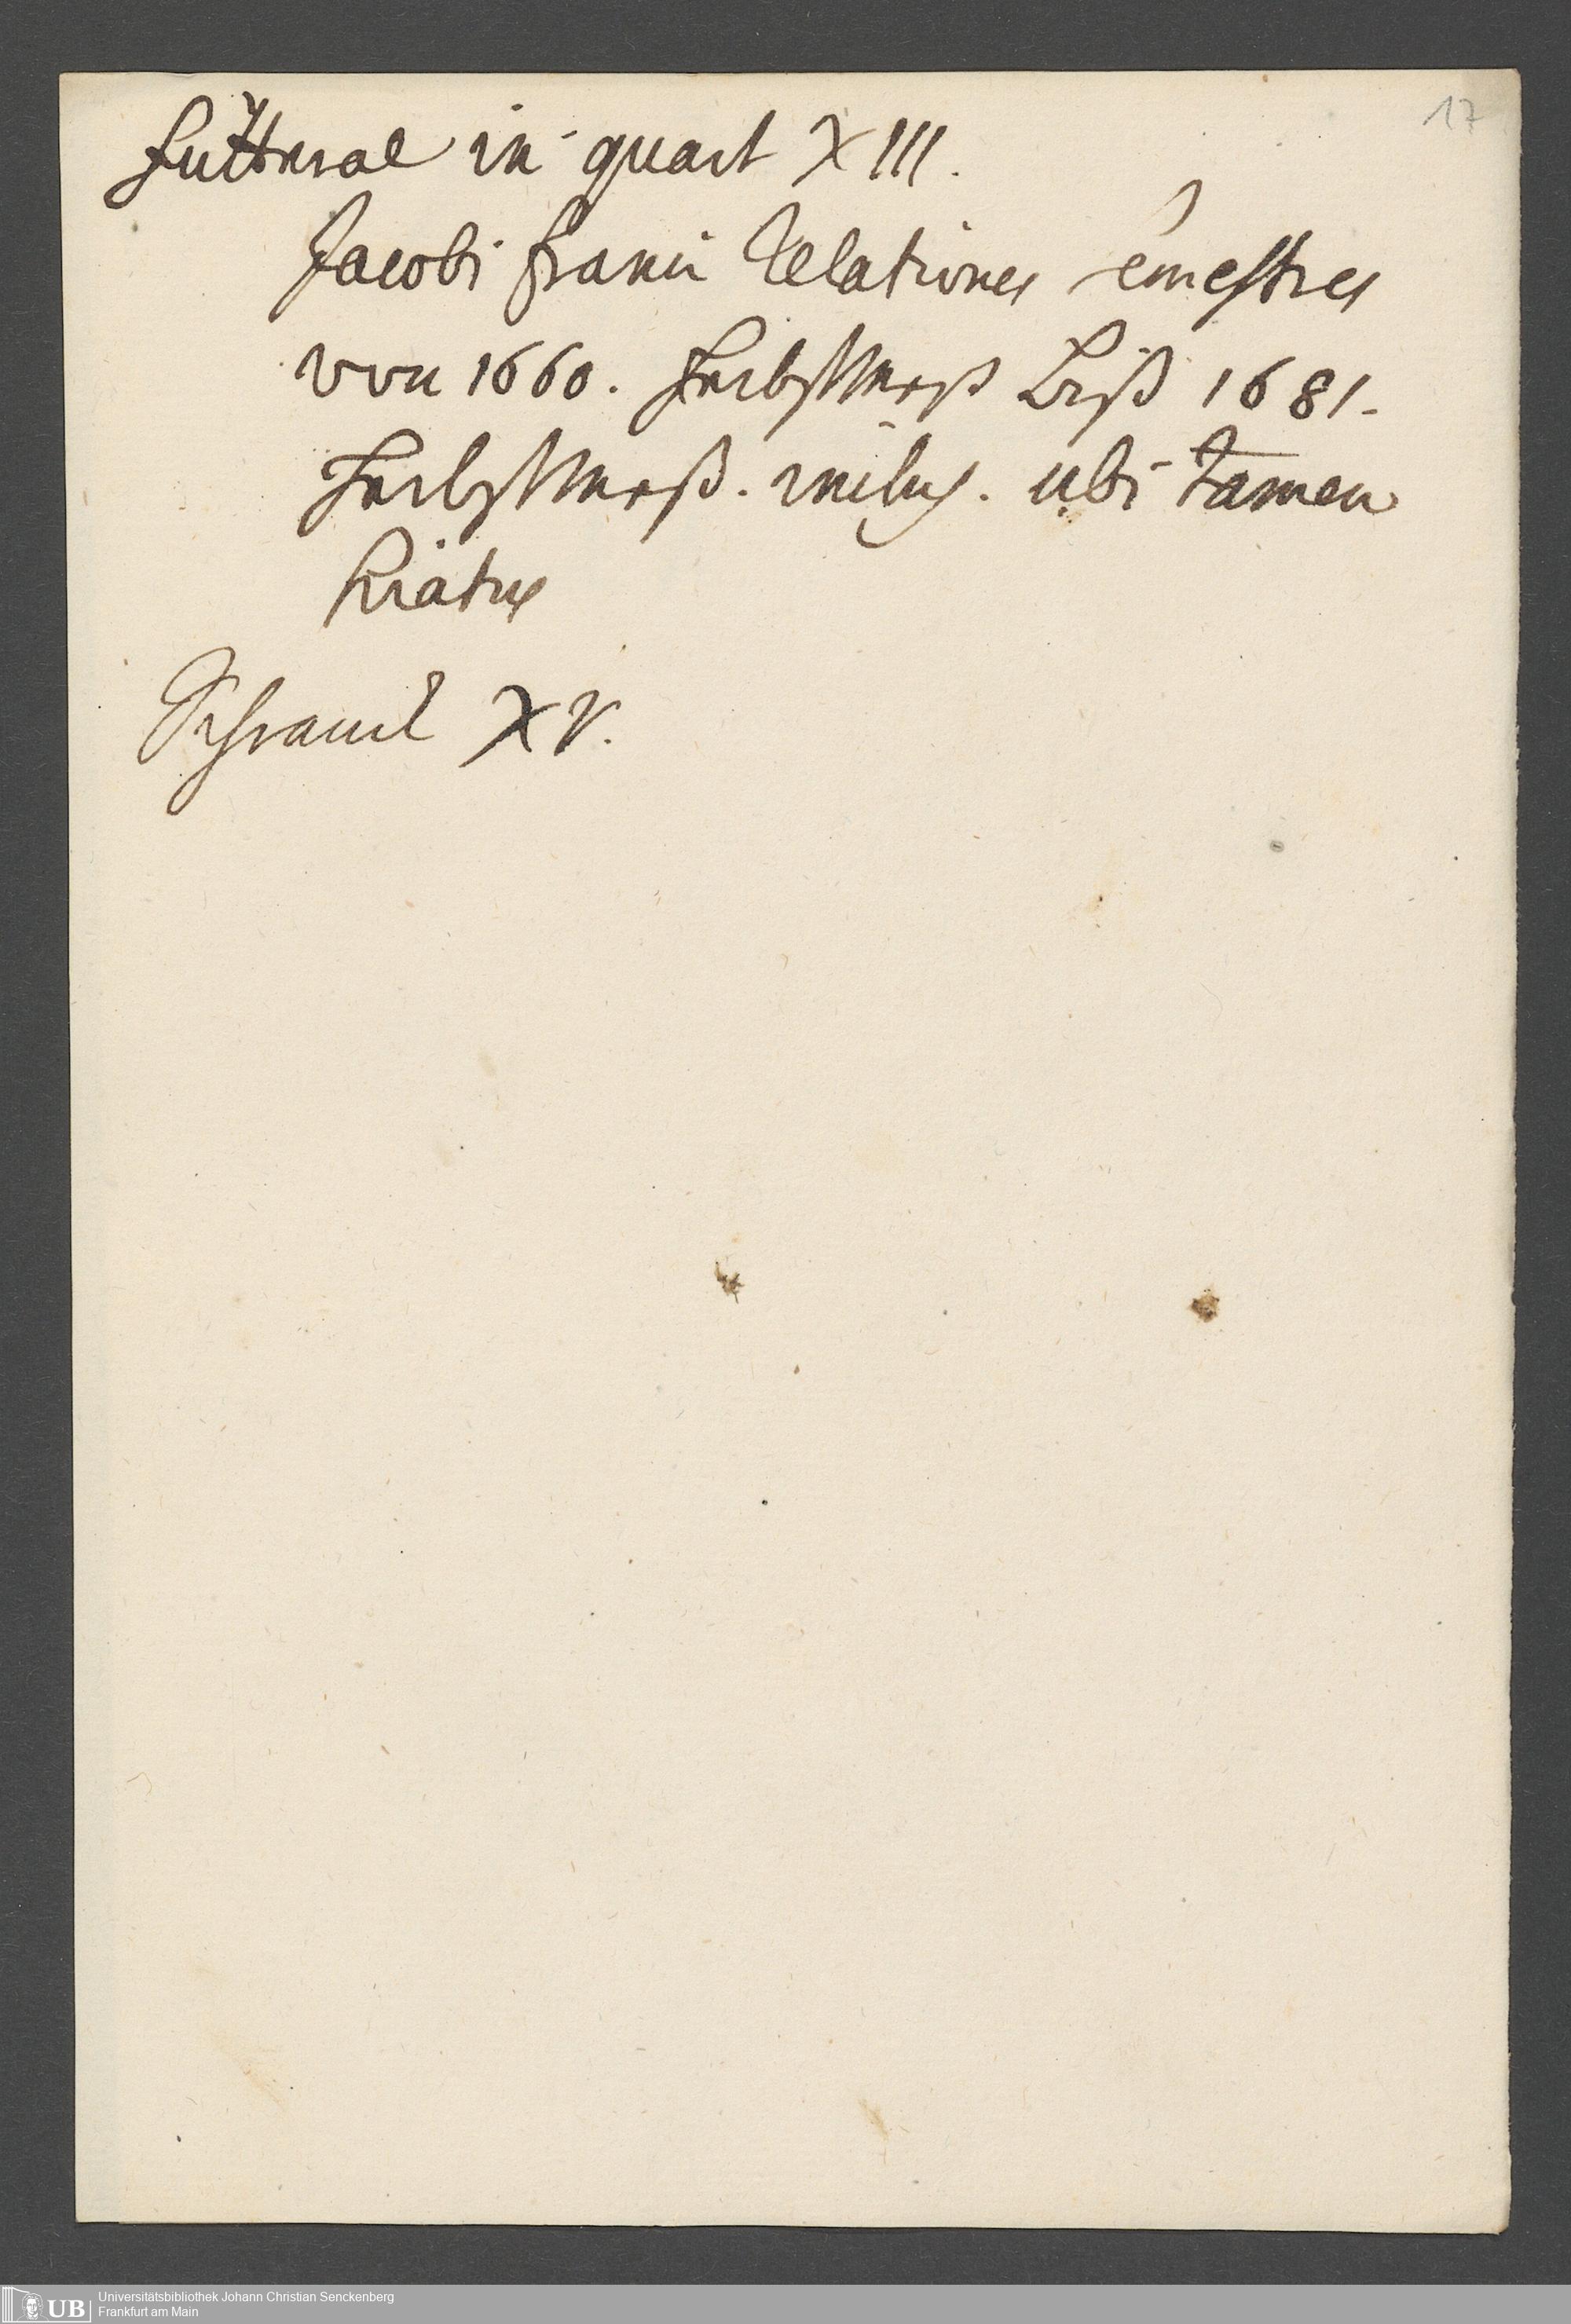 17
Futteral in quart XIII.
Jacobi Franci Relationes semestres
von 1660. Herbstmeß biß 1681.
Herbstmeß. inclus. ubi tamen
hiatus
Schranck XV.
UB
Universitätsbibliothek Johann Christian Senckenberg
Frankfurt am Main